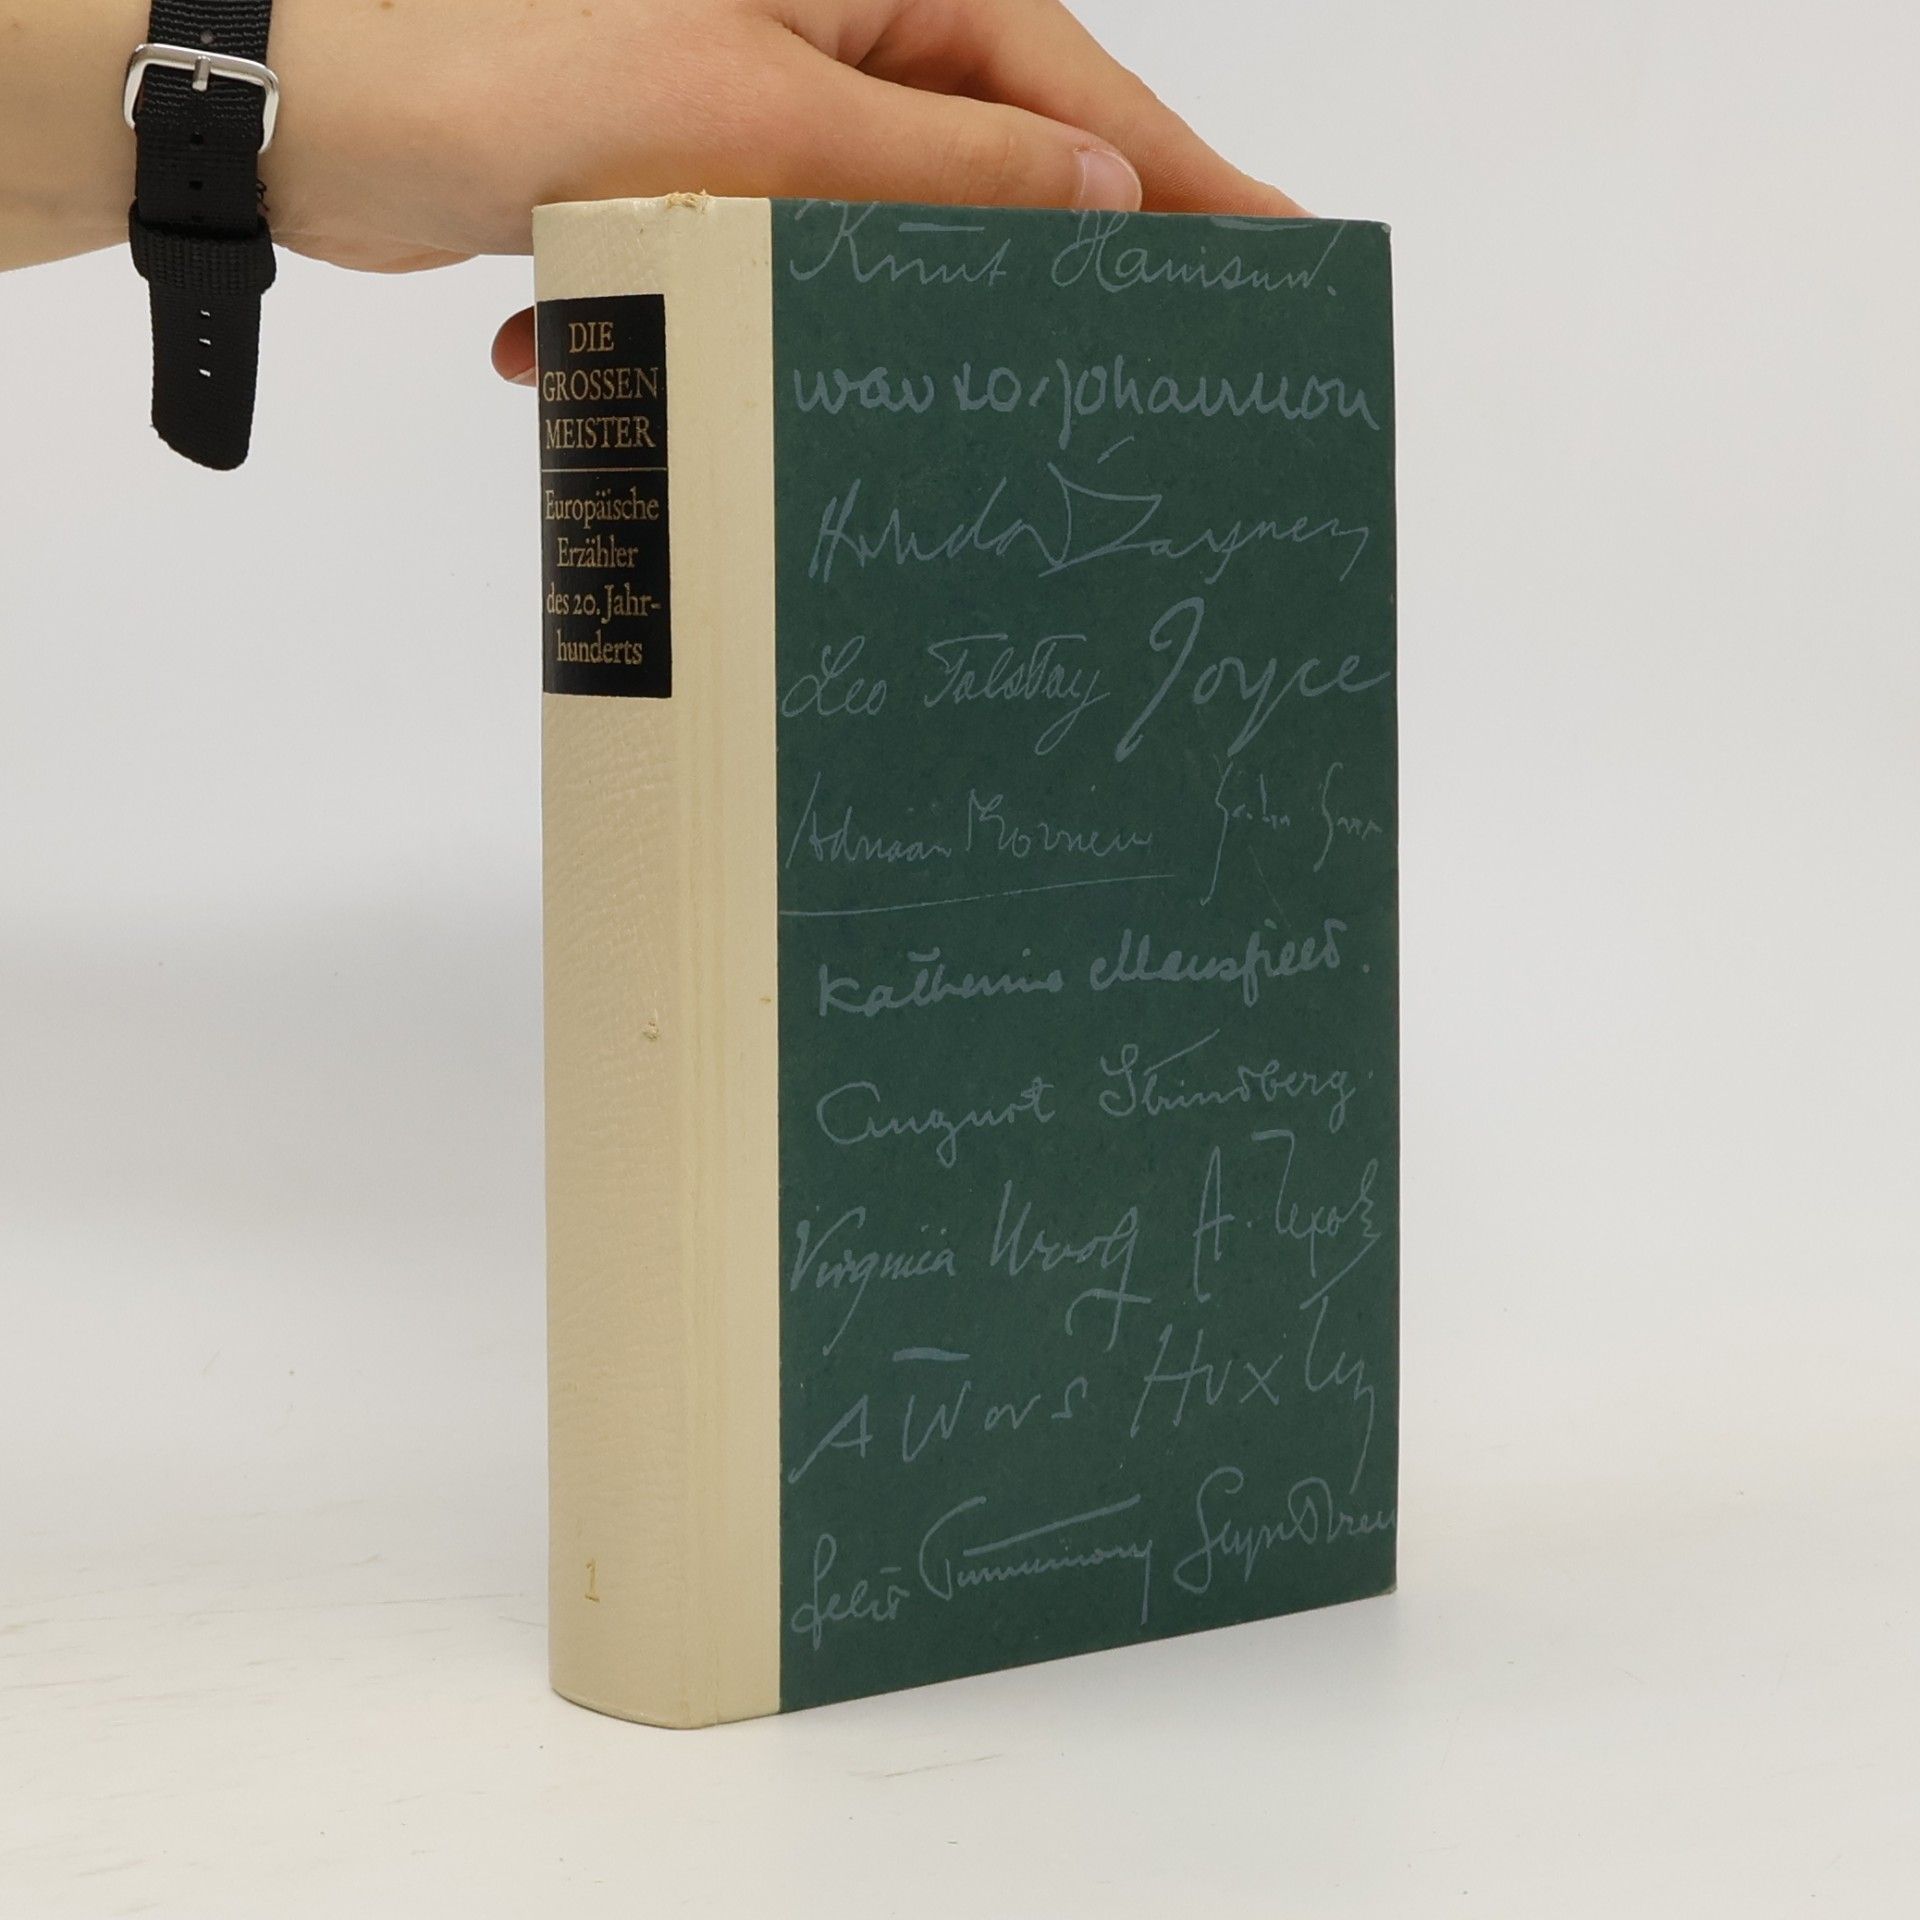 DIE
GROSSEN
MEISTER
Europäische
Erzähler
des 20. Jahr-
hunderts
1
Knut Hamsun.
Leo Tolstoy Joyce
Adriaan
Katherine Mansfield.
August Strindberg.
Virginia Woolf A. Чехов
Aldous Huxley
Felix Timmermans